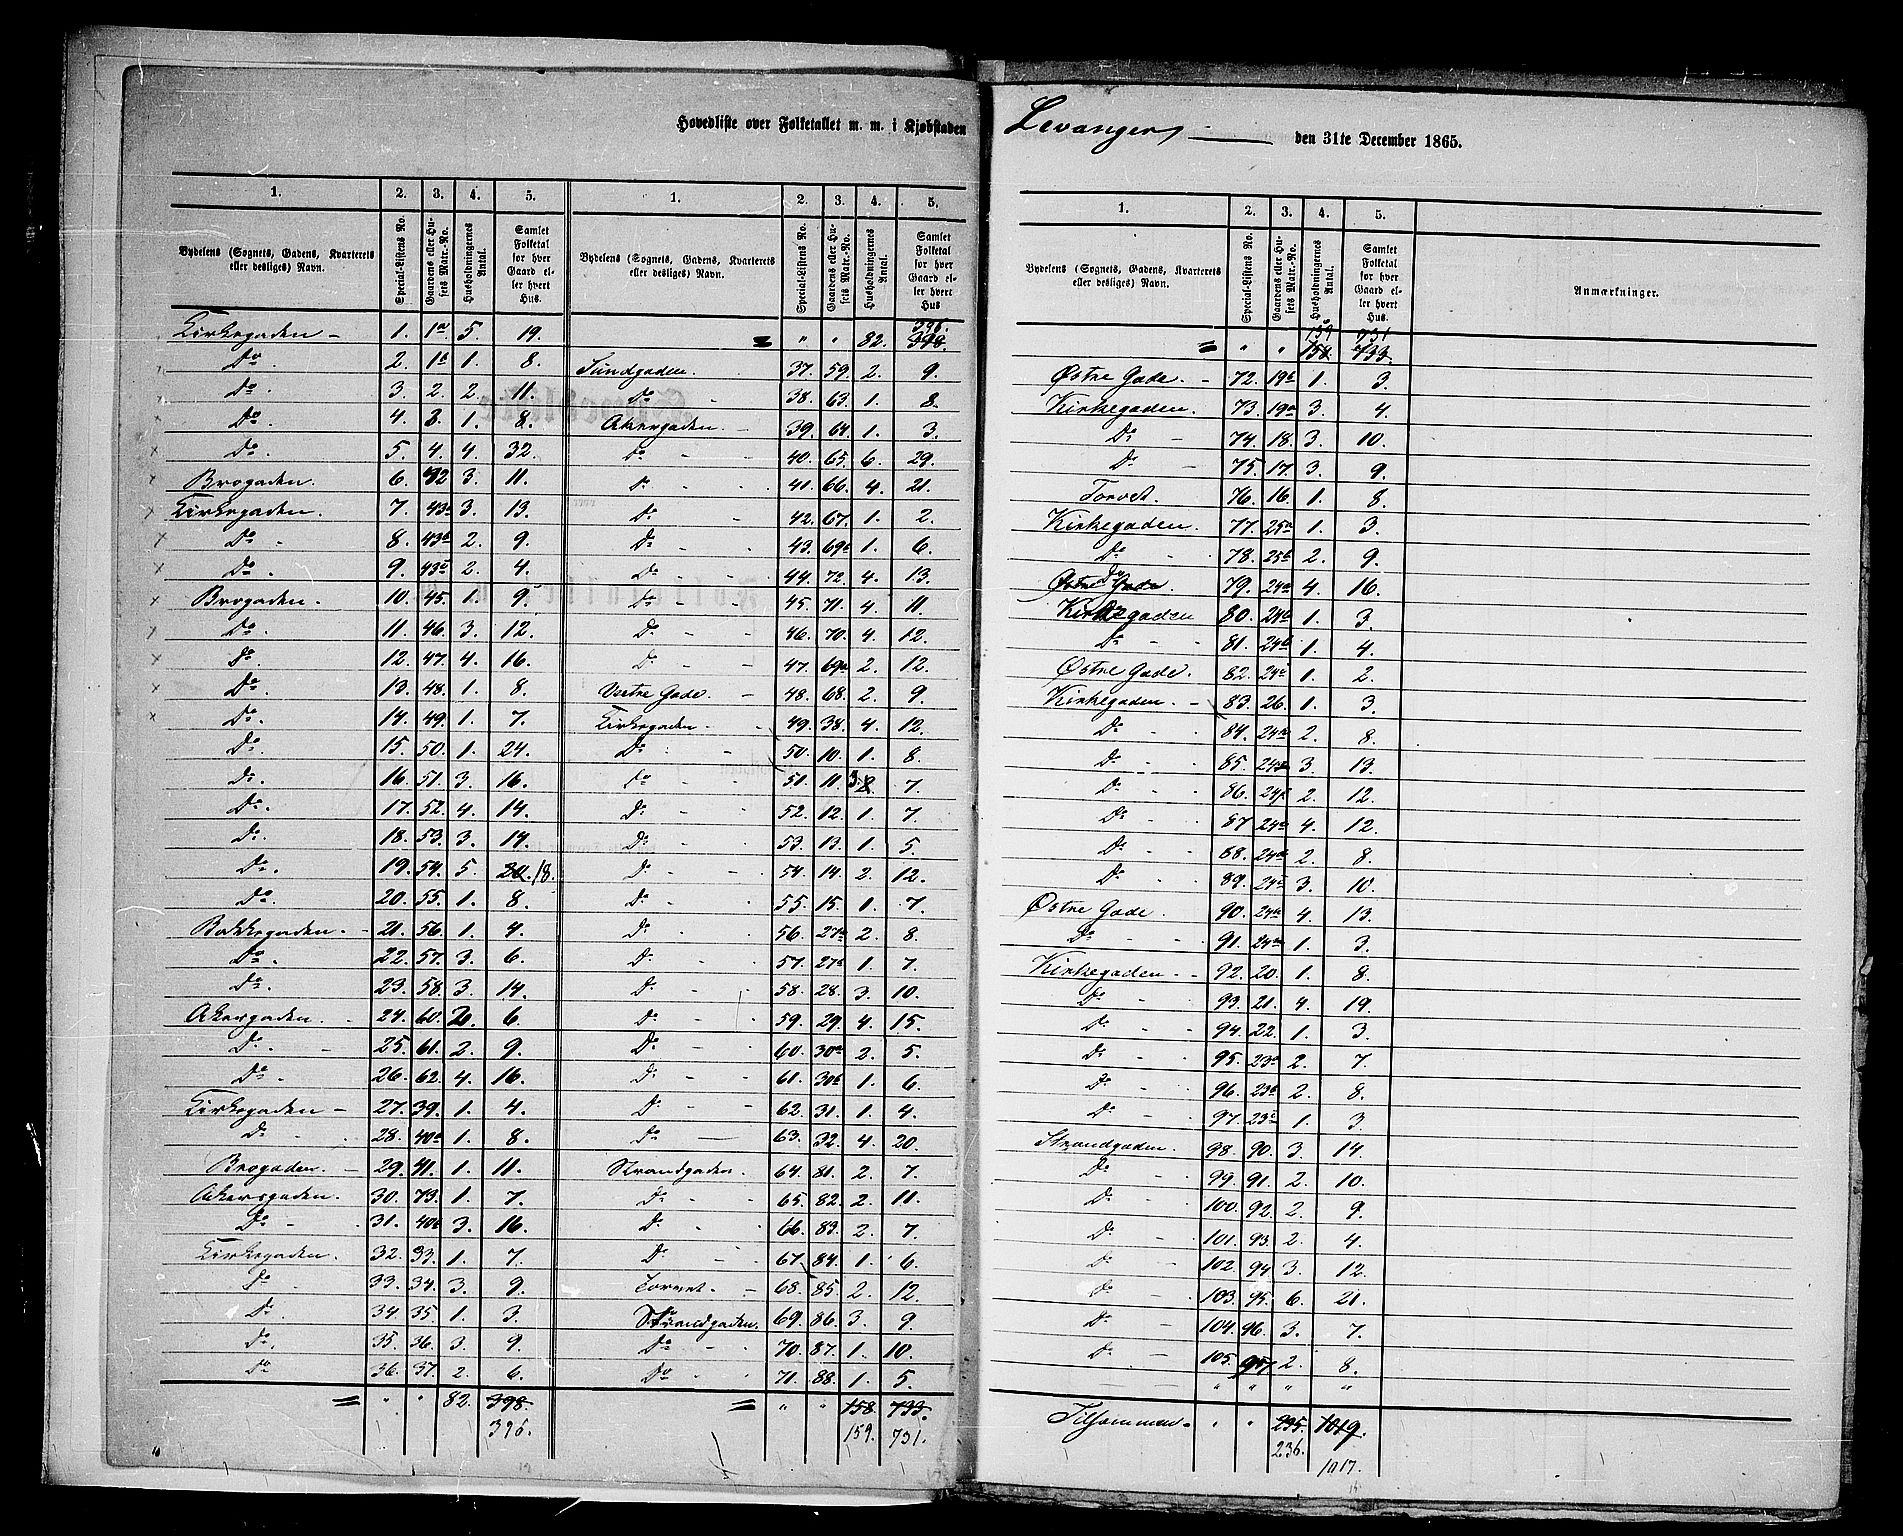 Hovedliste over Folketallet m. m. i Kjøbstaden Levanger, den 31te December 1865.
1. 2. 3. 4. 5.
Bydelens (Sognets, Gadens, Kvarterets eller desliges) Navn. Special-Listens No. Gaardens eller Husets Matr.-No. Husholdningernes Antal. Samlet Folketal for hver Gaard eller hvert Hus.
Kirkegaden - 1. 1a 5. 19.
Do. 2. 1b 1. 8.
Do. 3. 2. 2. 11.
Do. 4. 3. 1. 8.
Do. 5. 4. 4. 32.
Brogaden. 6. 42 3. 11.
Kirkegaden. 7. 43a 3. 13.
Do - 8. 43b 2. 9.
Do. 9. 43c 2. 4.
Brogaden. 10. 45. 1. 9.
Do. 11. 46. 3. 12.
Do. 12. 47. 4. 16.
Do. 13. 48. 1. 8.
Do. 14. 49. 1. 7.
Do. 15. 50. 1. 24.
Do. 16. 51. 3. 16.
Do. 17. 52. 4. 14.
Do. 18. 53. 3. 14.
Do. 19. 54. 5. 20. 18.
Do. 20. 55. 1. 8.
Bakkegaden. - 21. 56. 1. 4.
Do. 22. 57. 3. 6.
Do. 23. 58. 3. 14.
Akergaden. - 24. 60. 2. 6.
Do. - 25. 61. 2. 9.
Do. 26. 62. 4. 16.
Kirkegaden - 27. 39. 1. 4.
Do - 28. 40a 1. 8.
Brogaden. - 29. 41. 1. 11.
Akersgaden. 30. 73. 1. 7.
Do - 31. 40b 3. 16.
Kirkegaden. 32. 33. 1. 7.
Do 33. 34. 3. 9.
Do. 34. 35. 1. 3.
Do. 35. 36. 3. 9.
Do 36. 37. 2. 6.
= " " 82. 398.
396.
1. 2. 3. 4. 5.
Bydelens (Sognets, Gadens, Kvarterets eller desliges) Navn. Special-Listens No. Gaardens eller Husets Matr.-No. Husholdningernes Antal. Samlet Folketal for hver Gaard eller hvert Hus
396.
= " " 82. 398.
Sundgaden. 37. 59. 2. 9.
Do - 38. 63. 1. 8.
Akergaden. - 39. 64. 1. 3.
Do - - 40. 65. 6. 29.
Do - - 41. 66. 4. 21.
Do - 42. 67. 1. 2.
Do - - 43. 69b 1. 6.
Do - - 44. 72. 4. 13.
Do - - 45. 71. 4. 11.
Do - - 46. 70. 4. 12.
Do - - 47. 69a 2. 12.
Vestre Gade. - 48. 68. 2. 9.
Kirkegaden - - 49. 38. 4. 12.
Do - - 50. 10. 1. 8.
Do - - 51. 11. 3. 7.
Do - - 52. 12. 1. 7.
Do - - 53. 13. 1. 5.
Do - - 54. 14. 2. 12.
Do - - 55. 15. 1. 7.
Do - 56. 27a 2. 8.
Do - 57. 27b 1. 7.
Do - - 58. 28. 3. 10.
Do - - 59. 29. 4. 15.
Do - - 60. 30a 2. 5.
Do - - 61. 30b 1. 6.
Do - - 62. 31. 1. 4.
Do - 63. 32. 4. 20.
Strandgaden. 64. 81. 2. 7.
Do - - 65. 82. 2. 11.
Do - - 66. 83. 2. 7.
Do - - 67. 84. 1. 6.
Torvet. - 68. 85. 2. 12.
Strandgaden. 69. 86. 3. 9.
Do - - 70. 87. 1. 10.
Do - - 71. 88. 1. 5.
= " " 158 733.
159. 731.
1. 2. 3. 4. 5.
Bydelens (Sognets, Gadens, Kvarterets eller desliges) Navn. Special-Listens No. Gaardens eller Husets Matr.-No. Husholdningernes Antal. Samlet Folketal for hver Gaard eller hvert Hus. Anmærkninger.
159 731
= " " 158. 733.
Østre Gade. - 72. 19b 1. 3.
Kirkegaden. 73. 19a 3. 4.
Do - 74. 18. 3. 10.
Do - 75. 17. 3. 9.
Torvet. 76. 16. 1. 8.
Kirkegaden. 77. 25a 1. 3.
Do - - 78. 25b 2. 9.
Østre Gade. Do 79. 24 4. 16.
Kirkegaden 80. 24 1. 3.
Do - - 81. 24 1. 4.
Østre Gade. 82. 24 1. 2.
Kirkegaden. - 83. 26. 1. 3.
Do - - 84. 24 2. 8.
Do - - 85. 24 3. 13.
Do - - 86. 24 2. 12.
Do - - 87 24 4. 12.
Do - - 88. 24 2. 8.
Do - - 89. 24 3. 10.
Østre Gade. 90. 24 4. 13.
Do - - 91. 24 1. 3.
Kirkegaden - - 92. 20. 1. 8.
Do - 93. 21. 4. 19.
Do - - 94. 22. 1. 3.
Do - - 95. 23a 2. 7.
Do - - 96. 23b 2. 8.
Do - - 97. 23c 1. 3.
Strandgaden. 98. 90. 3. 14.
Do - 99. 91. 2. 10.
Do - - 100. 92. 2. 9.
Do - 101. 93. 2. 4.
Do - 102. 94 3. 12.
Do - 103. 95. 6. 21.
Do - 104. 96. 3. 7.
Do - 105. 97. 2. 8.
" " " "
Tilsammen. " " 235. 1019.
236. 1017.